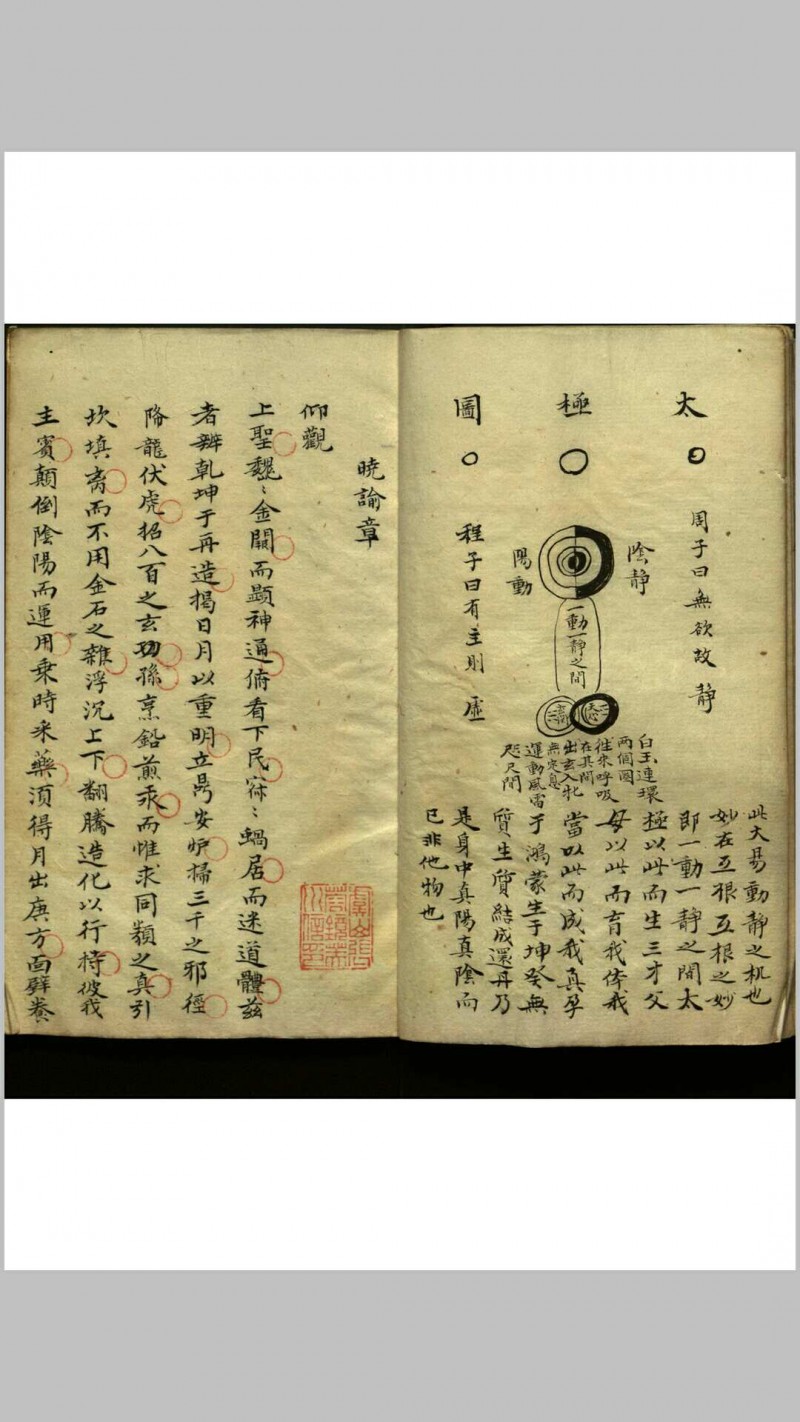 太極圖
周子曰無欲故靜
陰靜
陽動
一動一靜之間
程子曰有主則虛
白玉連環
兩個圈
往來呼吸
在其間
出玄入牝
無定息
運動風雷
咫尺間
此大易動靜之机也
妙在互根互根之妙
即一動一靜之間太
極以此而生三才父
母以此而育我侔我
當以此而成我真孕
于鴻蒙生于坤癸無
質生質結成還丹乃
是身中真陽真陰而
已非他物也
曉諭章
仰觀
上聖巍〻金闕而顕神通俯看下民寂〻蝸居而迷道體兹
者辨乾坤于再造揭日月以重明立鼎安炉掃三千之邪徑
降龍伏虎招八百之玄功孫烹鉛煎汞而惟求同類之真引
坎填离而不用金石之雜浮沉上下翻騰造化以行持彼我
主賓顛倒陰陽而運用乗時采藥須得月出庚方面壁養